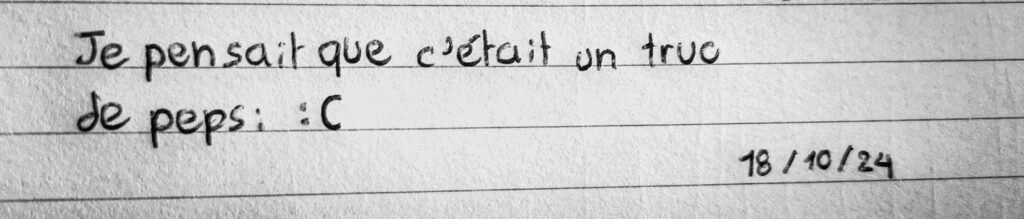 Je pensait que c'était un truc
de pepsi :C
18/10/24